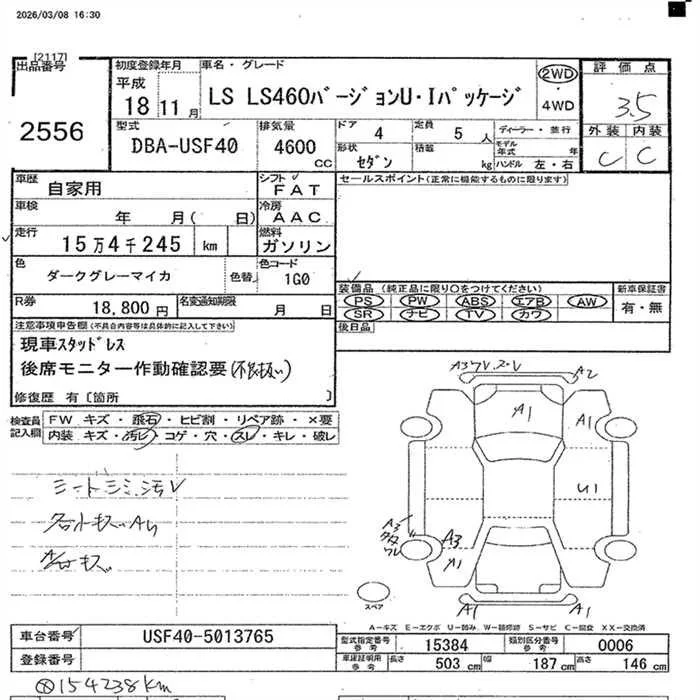 2026/03/08 16:30
[2117]
出品番号
2556
初度登録年月
平成
18 11 月
車名・グレード
LS LS460バージョンU・Iパッケージ
2WD
4WD
評価点
3.5
外装 内装
C C
型式
DBA-USF40
排気量
4600 CC
ドア 4
定員 5 人
形状 セダン
積載 kg
ディーラー・並行
モデル年式 年
ハンドル 左・右
車歴 自家用
シフト FAT
セールスポイント(正常に機能するものに限ります)
車検 年 月( 日)
冷房 AAC
走行 15万4千245 km
燃料 ガソリン
色 ダークグレーマイカ
色替
色コード 1G0
装備品 (純正品に限り○をつけてください)
PS PW ABS エアB AW
SR ナビ TV カワ
新車保証書
有・無
R券 18,800円
名変通知期限 月 日
後日品
注意事項申告欄(不具合内容等は具体的に記入して下さい)
現車スタッドレス
後席モニター作動確認要(不良扱い)
修復歴 有〔箇所 〕
検査員記入欄
FW キズ・飛石・ヒビ割・リペア跡・×要
内装 キズ・汚レ・コゲ・穴・スレ・キレ・破レ
シートシミ、汚V
A3
A2
A1
A1
U1
A3
A3
A1
A1
A1
スペア
A-キズ E-エクボ U-凹み W-補修跡 S-サビ C-腐食 XX-交換済
車台番号 USF40-5013765
登録番号
型式指定番号 参考 15384
類別区分番号 参考 0006
車庫証明用 参考 長さ 503 cm 幅 187 cm 高さ 146 cm
154238km